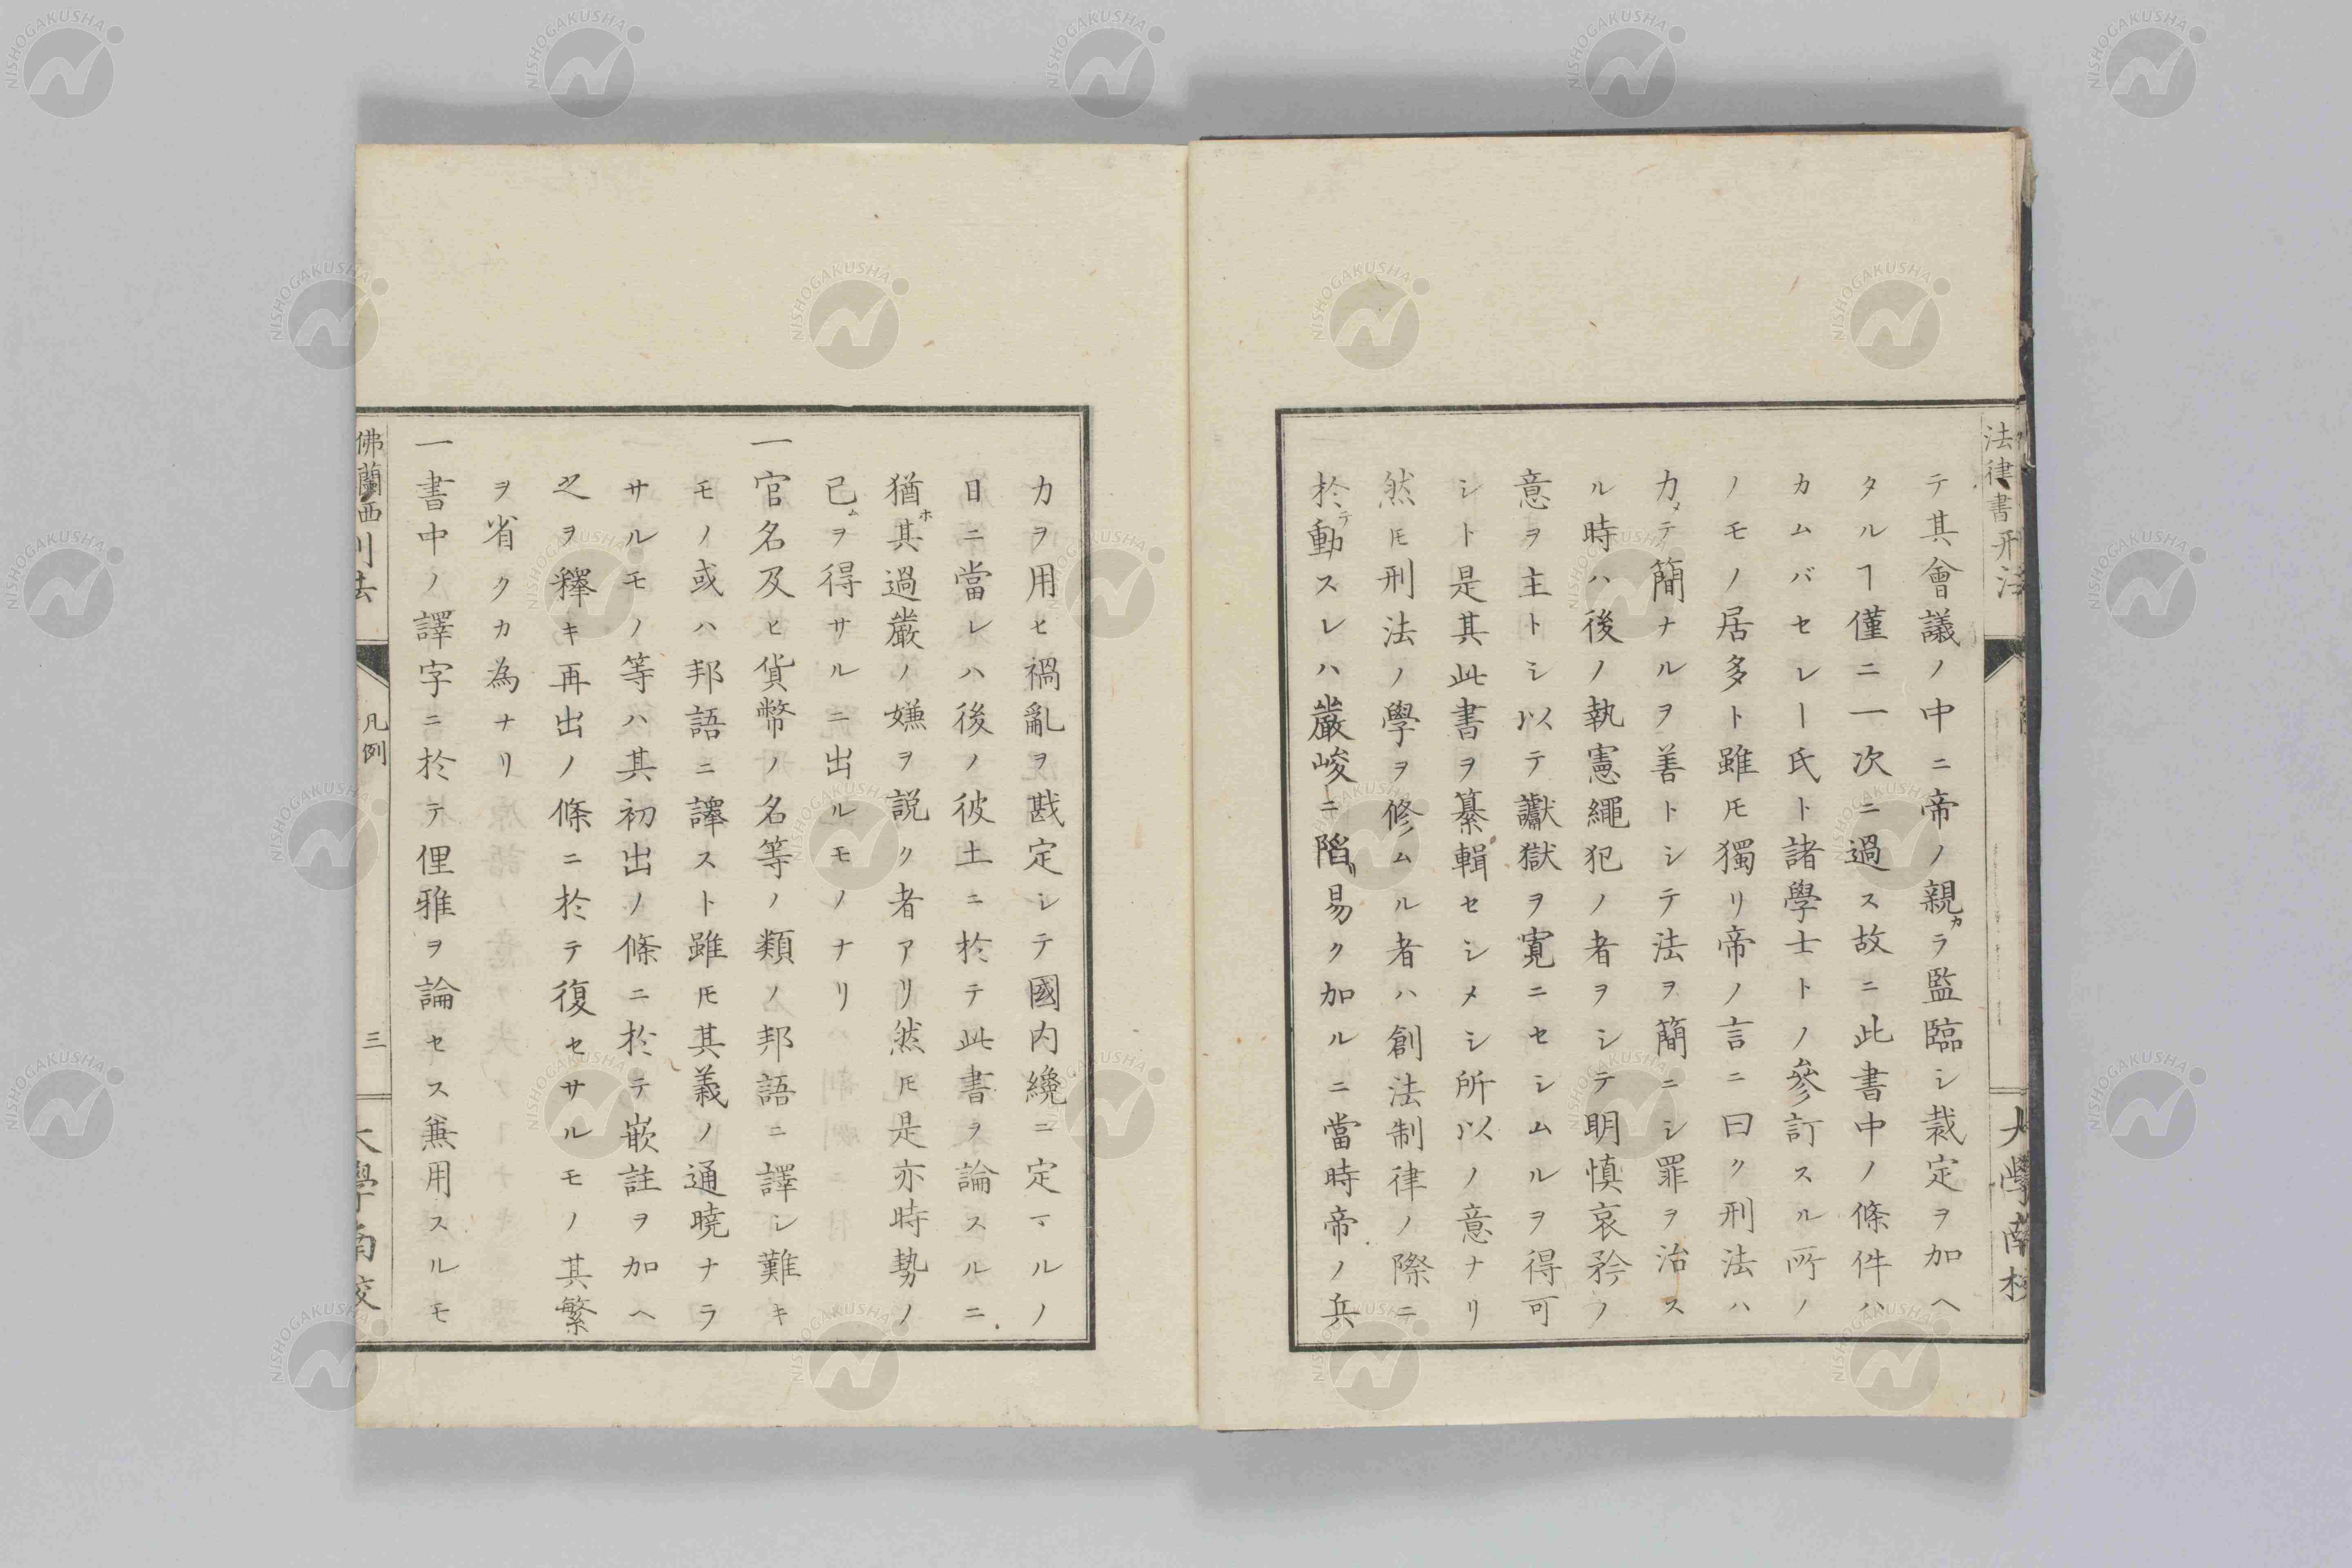 法律書刑法
大學南校
テ其會議ノ中ニ帝ノ親カラ監臨シ裁定ヲ加ヘ
タルヿ僅ニ一次ニ過ス故ニ此書中ノ條件ハ
カムバセレー氏ト諸學士トノ參訂スル所ノ
ノモノ居多ト雖𪜈獨リ帝ノ言ニ曰ク刑法ハ
力メテ簡ナルヲ善トシテ法ヲ簡ニシ罪ヲ治ス
ル時ハ後ノ執憲繩犯ノ者ヲシテ明慎哀矜ノ
意ヲ主トシ以テ讞獄ヲ寛ニセシムルヲ得可
シト是其此書ヲ纂輯セシメシ所以ノ意ナリ
然𪜈刑法ノ學ヲ修ムル者ハ創法制律ノ際ニ
於テ動スレハ嚴峻ニ陷リ易ク加ルニ當時帝ノ兵
力ヲ用セ禍亂ヲ戡定シテ國内纔ニ定マルノ
日ニ當レハ後ノ彼土ニ於テ此書ヲ論スルニ
猶ホ其過嚴ノ嫌ヲ説ク者アリ然𪜈是亦時勢ノ
已ムヲ得サルニ出ルモノナリ
一官名及ヒ貨幣ノ名等ノ類ノ邦語ニ譯シ難キ
モノ或ハ邦語ニ譯スト雖𪜈其義ノ通曉ナラ
サルモノ等ハ其初出ノ條ニ於テ嵌註ヲ加ヘ
之ヲ釋キ再出ノ條ニ於テ復セサルモノ其繁
ヲ省クカ為ナリ
一書中ノ譯字ニ於テ俚雅ヲ論セス兼用スルモ
佛蘭西刑法
凡例
三
大學南校
NISHOGAKUSHA